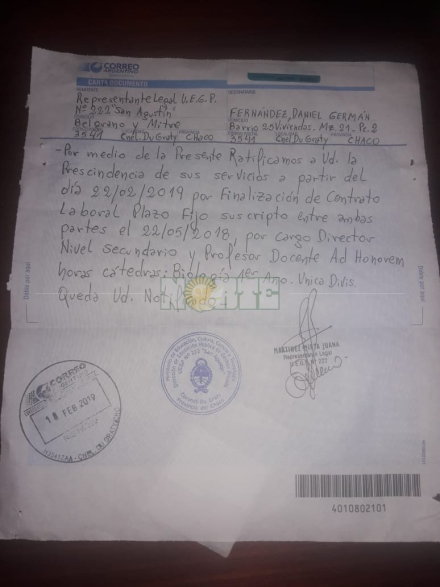 CORREO
ARGENTINO
CARTA DOCUMENTO
Representante Legal U.E.G.P.
Nº 222 "San Agustín"
Belgrano y Mitre
3541 Cnel. Du Graty CHACO
FERNÁNDEZ, DANIEL GERMÁN
Barrio 25 Viviendas - Mz. 21 - Pc. 2
3541 Cnel. Du Graty CHACO
- Por medio de la Presente Ratificamos a Ud. la
Prescindencia de sus servicios a partir del
día 22/02/2019 por Finalización de Contrato
Laboral Plazo Fijo suscripto entre ambas
partes el 22/05/2018, por cargo Director
Nivel Secundario y Profesor Docente Ad Honorem
horas cátedras: Biología 1er. Año. Unica Divis.
Queda Ud. Notificado
NORTE
MARTINEZ MIRTA JUANA
Representante Legal
U.E.G.P. Nº 222
CORREO
18 FEB 2019
4010802101